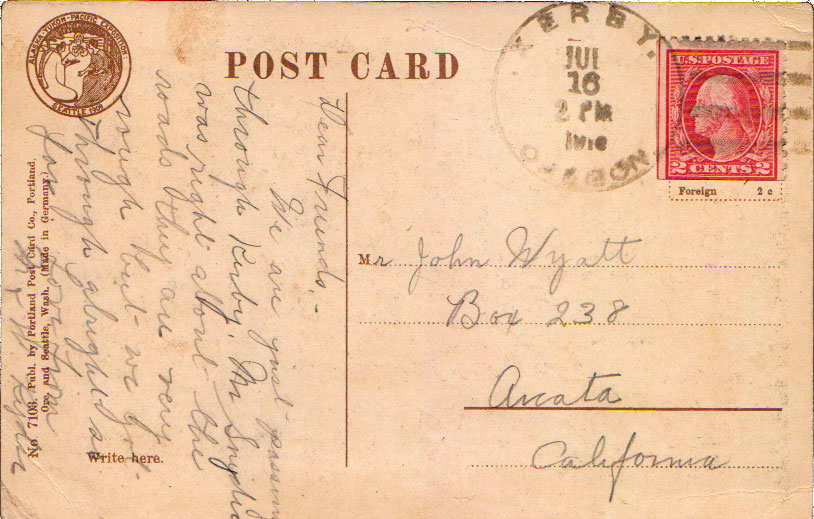 ALASKA-YUKON-PACIFIC EXPOSITION
SEATTLE 1909
POST CARD
KERBY.
JUL
16
2 PM
OREGON
U.S. POSTAGE
2 CENTS 2
Foreign 2 c
Dear Friends.-
We are just passing
through Kerby. Mr Snyder
was right about the
roads they are very
rough but we got
through alright so
far
No 7103. Publ. by Portland Post Card Co., Portland,
Ore. and Seattle, Wash. (Made in Germany.)
Write here.
Mr John Wyatt
Box 238
Arcata
California